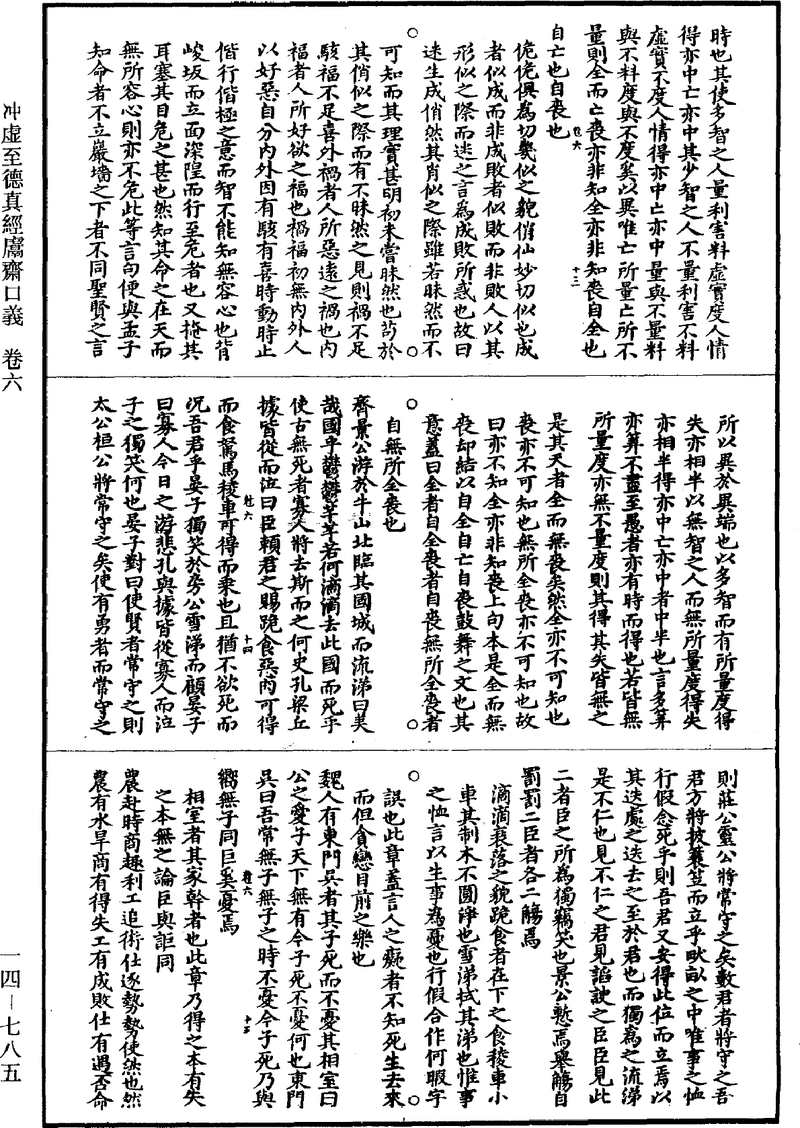 時也其使多智之人量利害料虛實度人情
得亦中亡亦中其少智之人不量利害不料
虛實不度人情得亦中亡亦中量與不量料
與不料度與不度奚以異唯亡所量亡所不
量則全而亡喪亦非知全亦非知喪自全也
卷六
十三
自亡也自喪也
佹佹俱為切幾似之貌俏仙妙切似也成
者似成而非成敗者似敗而非敗人以其
形似之際而迷之言為成敗所惑也故曰
迷生成俏然其肖似之際雖若昧然而不
可知而其理實甚明初未嘗昧然也苟於
其俏似之際而有不昧然之見則禍不足
駭福不足喜外禍者人所惡遠之禍也內
福者人所好欲之福也禍福初無內外人
以好惡自分內外因有駭有喜時動時止
偕行偕極之意而智不能知無容心也背
峻坂而立面深隍而行至危者也又掩其
耳塞其目危之甚也然知其命之在天而
無所容心則亦不危此等言句便與孟子
知命者不立巖墻之下者不同聖賢之言
所以異於異端也以多智而有所量度得
失亦相半以無智之人而無所量度得失
亦相半得亦中亡亦中者中半也言多算
亦算不盡至愚者亦有時而得也若皆無
所量度亦無不量度則其得其失皆無之
是其天者全而無喪矣然全亦不可知也
喪亦不可知也無所全喪亦不可知也故
曰亦不知全亦非知喪上句本是全而無
喪却結以自全自亡自喪鼓舞之文也其
意蓋曰全者自全喪者自喪無所全喪者
自無所全喪也
齊景公游於牛山北臨其國城而流涕曰美
哉國乎鬱鬱芊芊若何滴滴去此國而死乎
使古無死者寡人將去斯而之何史孔梁丘
據皆從而泣曰臣賴君之賜跪食惡肉可得
而食駑馬稜車可得而乘也且猶不欲死而
卷六
十四
況吾君乎晏子獨笑於旁公雪涕而顧晏子
曰寡人今日之游悲孔與據皆從寡人而泣
子之獨笑何也晏子對曰使賢者常守之則
太公桓公將常守之矣使有勇者而常守之
則莊公靈公將常守之矣數君者將守之吾
君方將披蓑笠而立乎畎畝之中唯事之恤
行假念死乎則吾君又安得此位而立焉以
其迭處之迭去之至於君也而獨為之流涕
是不仁也見不仁之君見諂諛之臣臣見此
二者臣之所為獨竊笑也景公慙焉舉觴自
罰罰二臣者各二觴焉
滴滴衰落之貌跪食者在下之食稜車小
車其制木不圓淨也雪涕拭其涕也惟事
之恤言以生事為憂也行假合作何暇字
誤也此章蓋言人之癡者不知死生去來
而但貪戀目前之樂也
魏人有東門吳者其子死而不憂其相室曰
公之愛子天下無有今子死不憂何也東門
吳曰吾常無子無子之時不憂今子死乃與
嚮無子同臣奚憂焉
卷六
十五
相室者其家幹者也此章乃得之本有失
之本無之論臣與詎同
農赴時商趣利工追術仕逐勢勢使然也然
農有水旱商有得失工有成敗仕有遇否命
冲虛至德真經鬳齋口義 卷六
一四—七八五